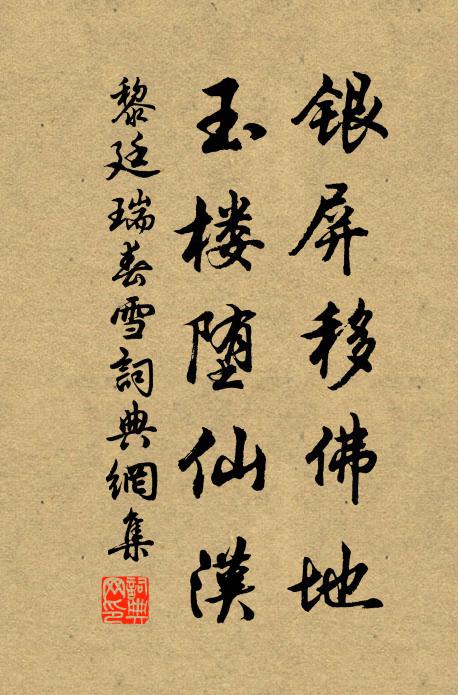 银屏移佛地
玉楼堕仙漢
黎廷瑞春雪詞典網集
詞典网印